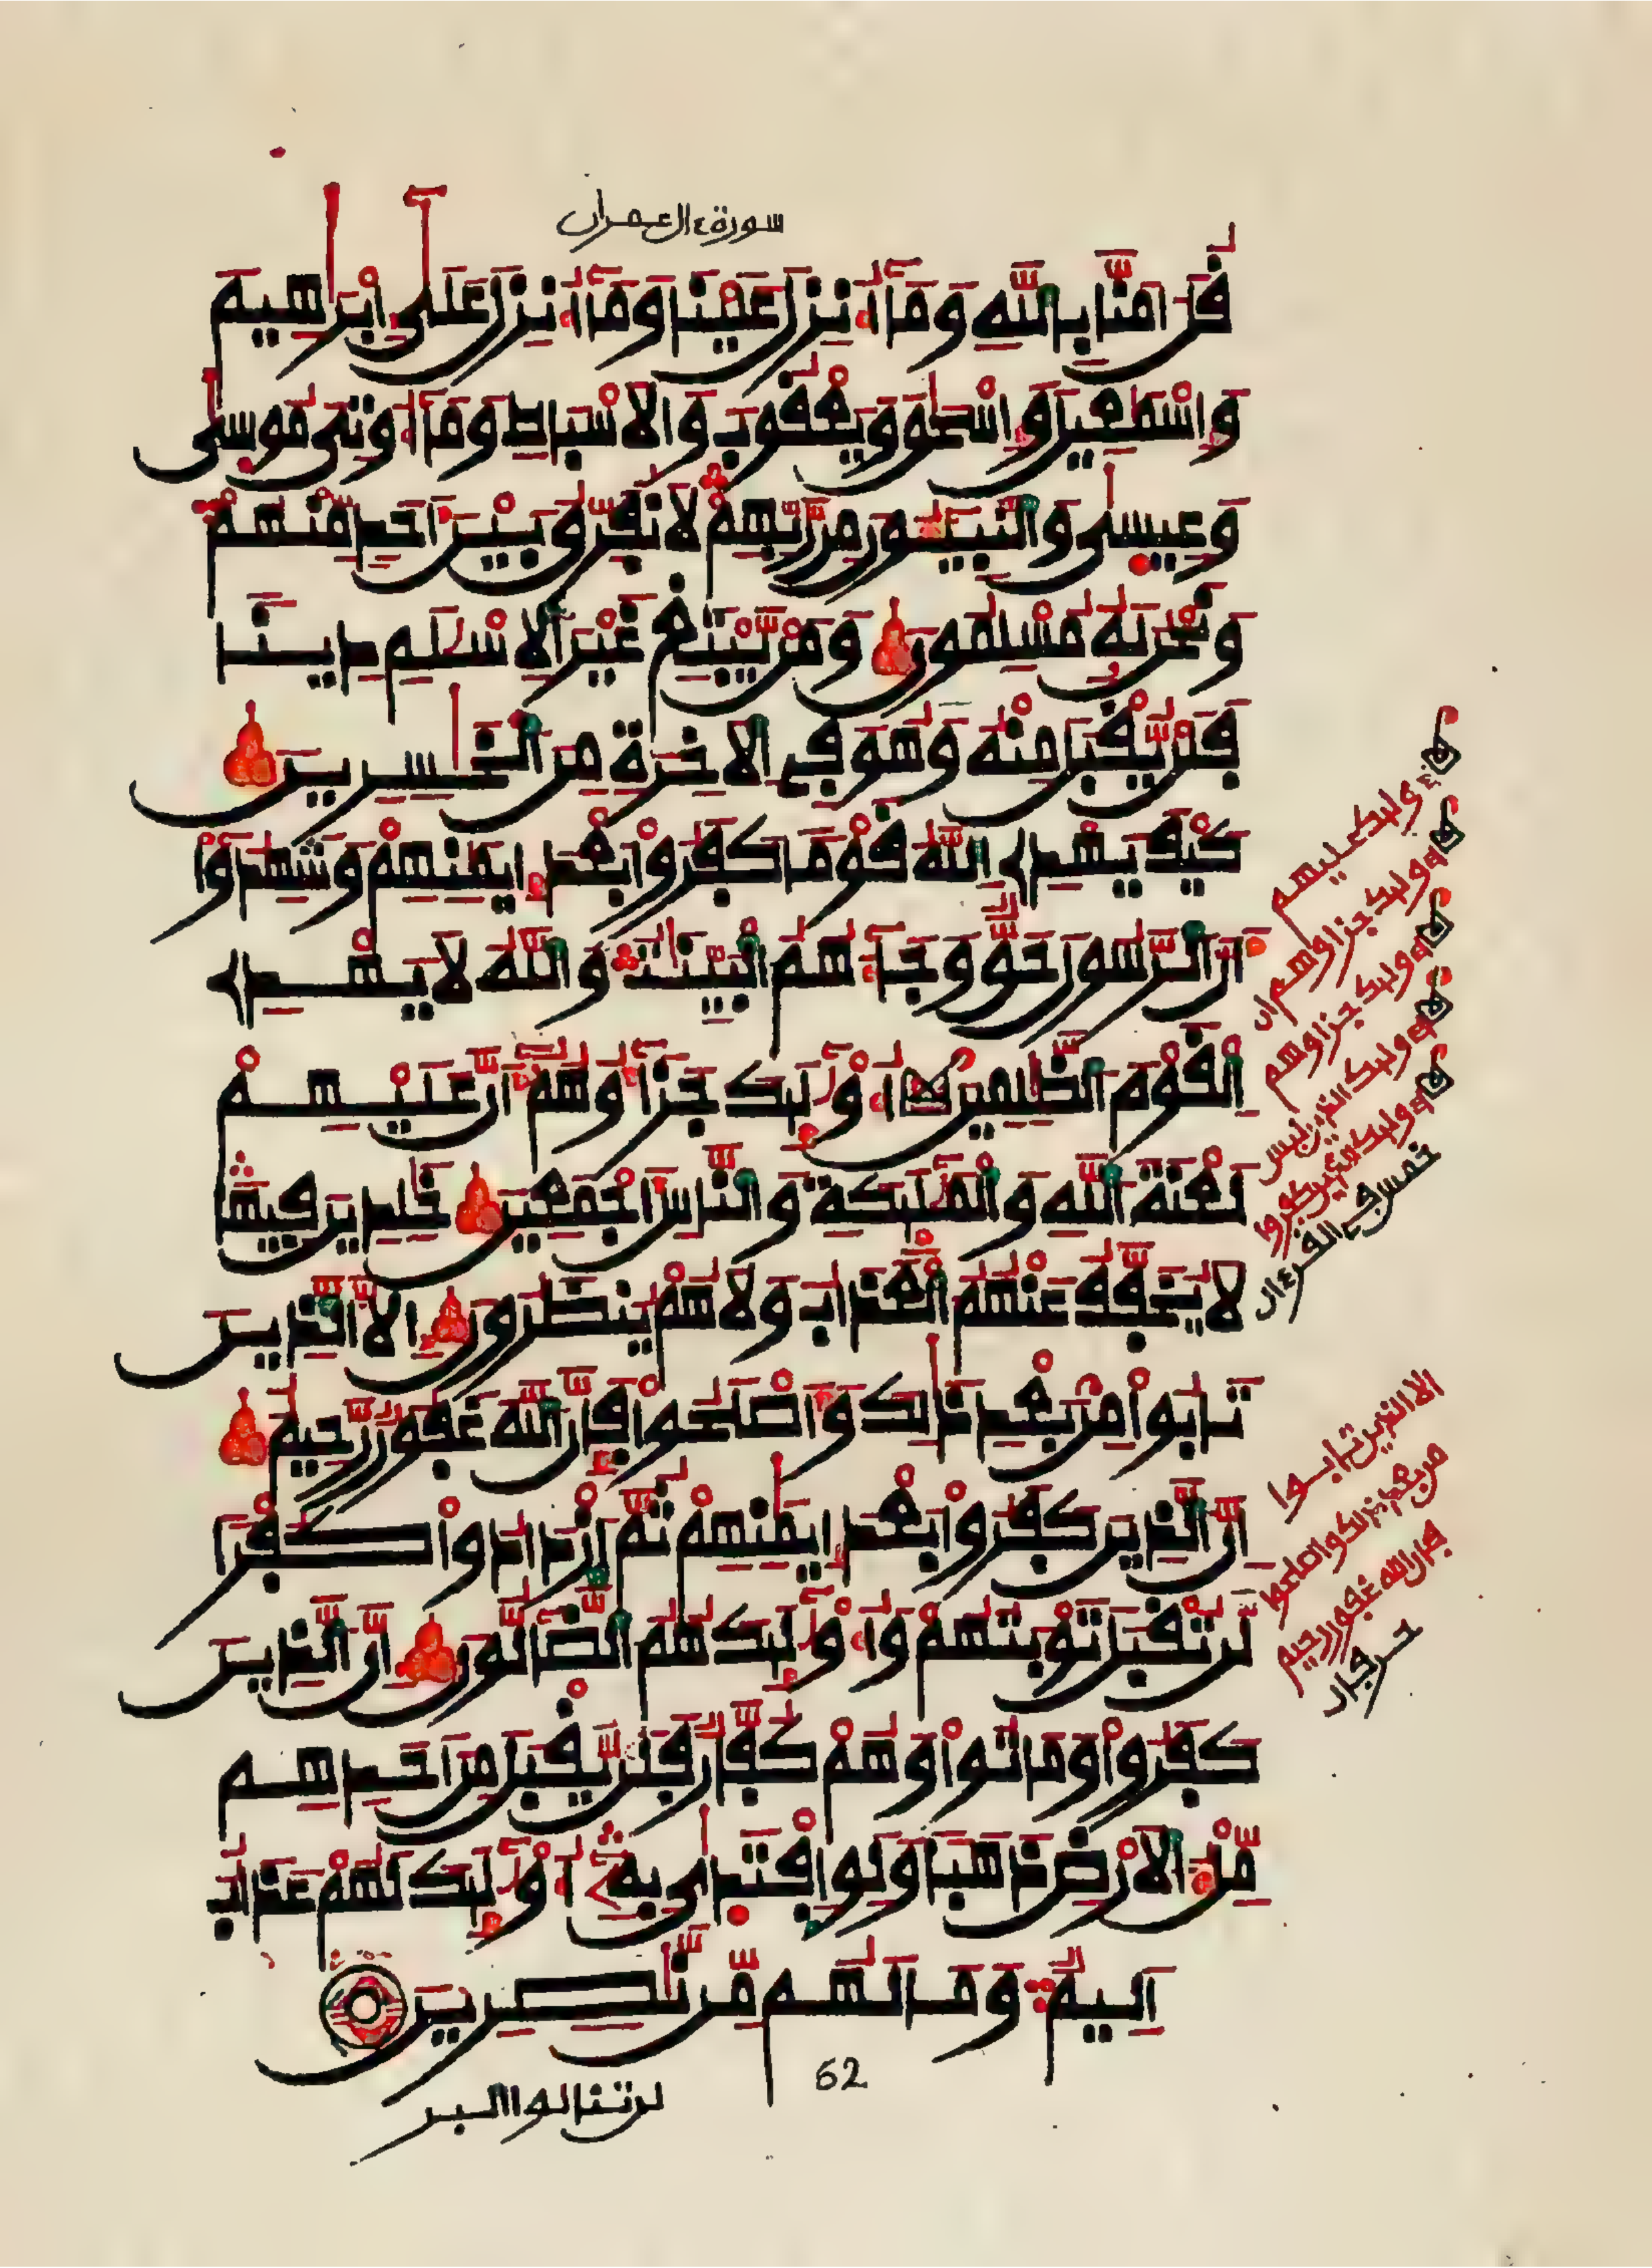 سورة ءال عمران
قل امنا بالله وما أنزل علينا وما أنزل على إبراهيم
وإسمعيل وإسحق ويعقوب والاسباط وما أوتي موسى
وعيسى والنبيئون من ربهم لا نفرق بين أحد منهم
ونحن له مسلمون ومن يبتغ غير الاسلم دينا
فلن يقبل منه وهو في الاخرة من الخسرين
كيف يهدي الله قوما كفروا بعد إيمنهم وشهدوا
أن الرسول حق وجاءهم البينت والله لا يهدي
القوم الظلمين أولئك جزاؤهم أن عليهم
لعنة الله والملئكة والناس أجمعين خلدين فيها
لا يخفف عنهم العذاب ولا هم ينظرون إلا الذين
تابوا من بعد ذالك وأصلحوا فإن الله غفور رحيم
إن الذين كفروا بعد إيمنهم ثم ازدادوا كفرا
لن تقبل توبتهم وأولئك هم الضالون إن الذين
كفروا وماتوا وهم كفار فلن يقبل من أحدهم
مل الارض ذهبا ولو افتدى به أولئك لهم عذاب
اليم وما لهم من نصرين
لن تنالوا البر
62
وأولئك عليهم
أولئك جزاؤهم أن
أولئك جزاؤهم
أولئك الذين ليس
أولئك الذين كفروا
خمس في القرءان
الا الذين تابوا
من بعد ذلك وأصلحوا
فإن الله غفور رحيم